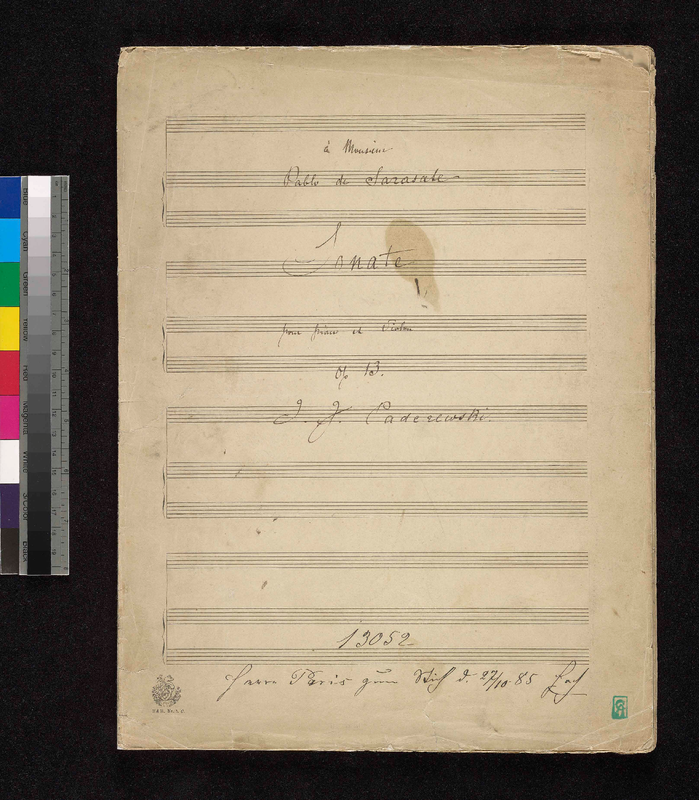 à Monsieur
Pablo de Sarasate
Sonate
pour piano et Violon
op 13.
I. J. Paderewski.
13052
Herrn Paris zum Stich d. 27/10 85